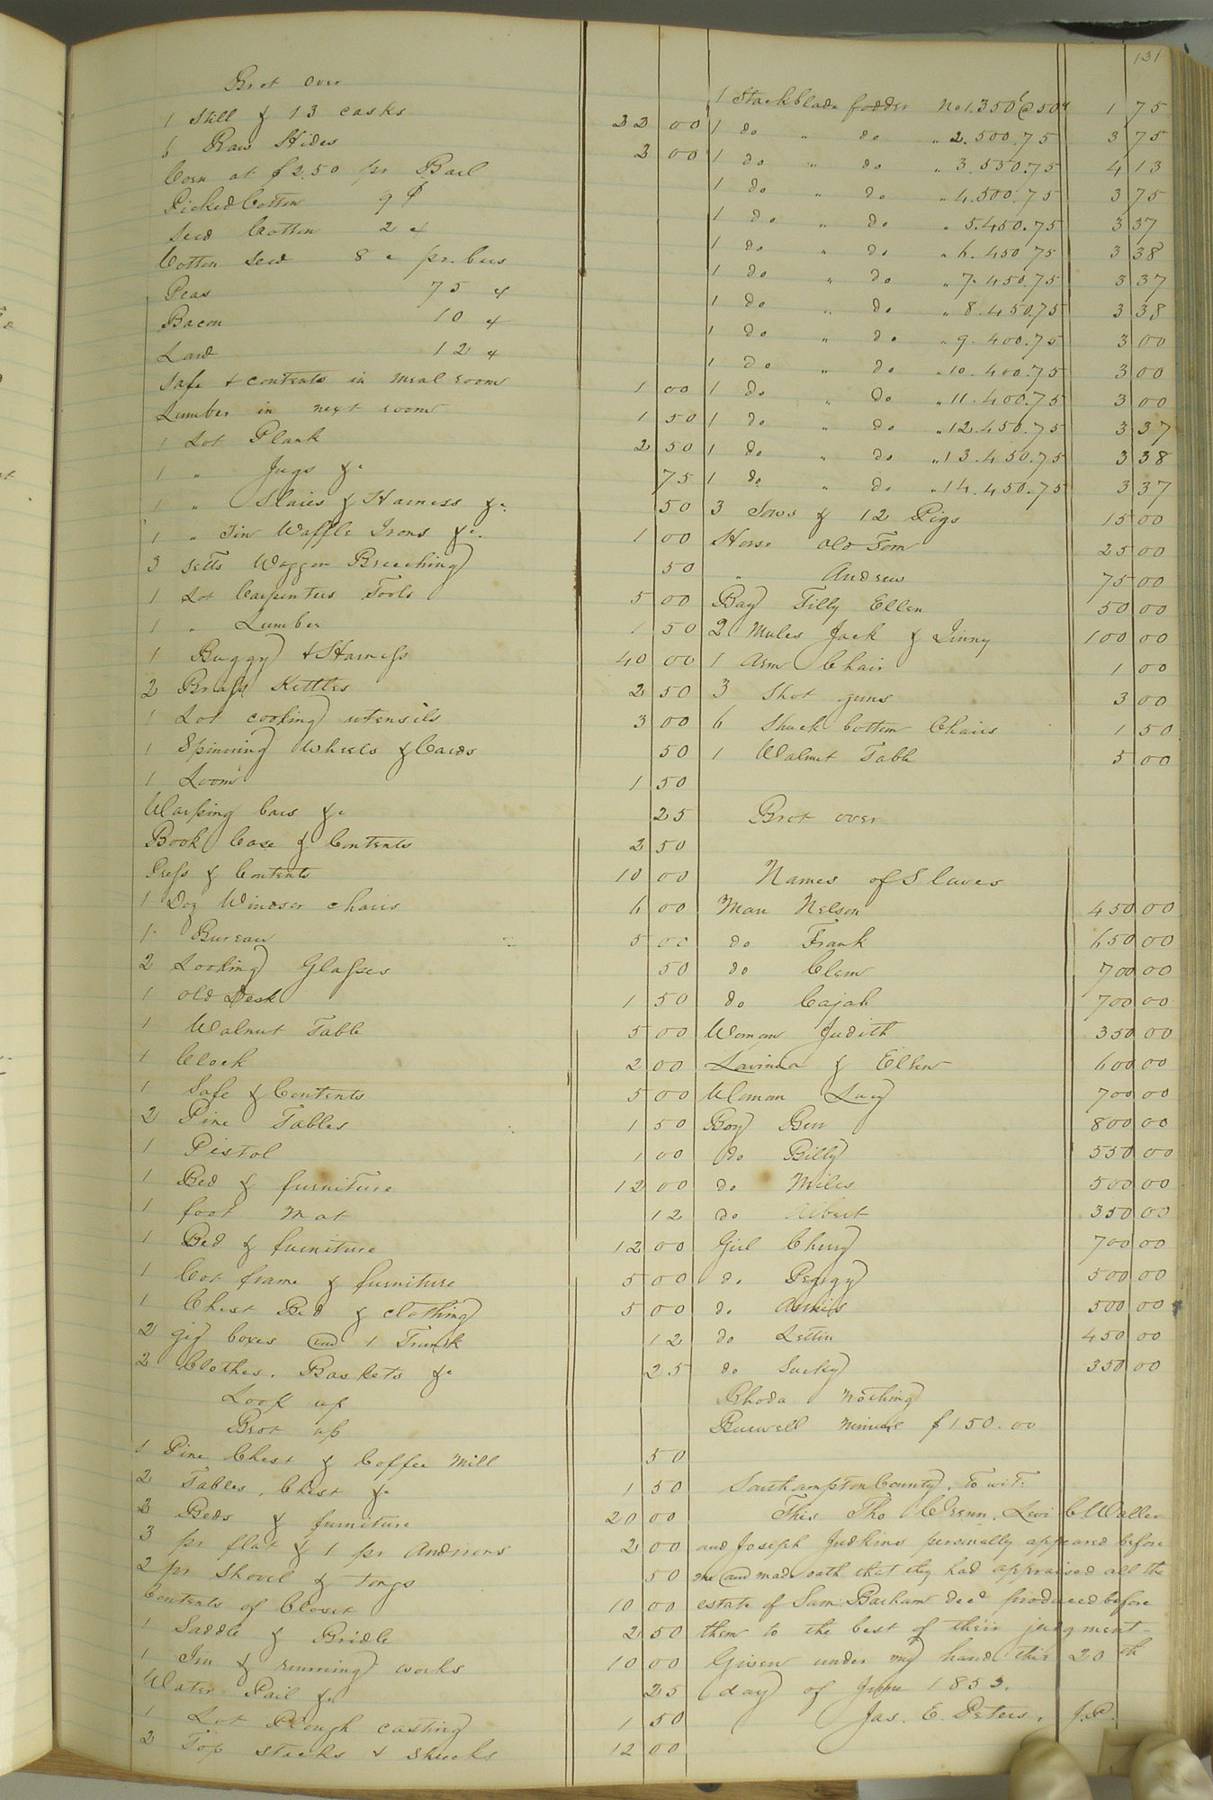 131
Brot over
1 Still & 13 casks 22 00
5 Raw Hides 3 00
Corn at $2.50 pr Barl
Picked Cotton 9 ¢
Seed Cotton 2 ¢
Cotton seed 8 c pr. bus
Peas 75 ¢
Bacon 10 ¢
Lard 12 ¢
Safe & contents in meal room 1 00
Lumber in next room 1 50
1 Lot Plank 2 50
1 " Jugs &c 75
1 " Slaies & Harness &c 50
1 " Tin Waffle Irons &c. 1 00
3 setts Waggon Breeching 50
1 Lot Carpenters Tools 5 00
1 " Lumber 1 50
1 Buggy & Harness 40 00
2 Brass Kettles 2 50
1 Lot cooking utensils 3 00
1 Spinning Wheels & Cards 50
1 Loom 1 50
Warping bars &c 25
Book Case & Contents 2 50
Press & Contents 10 00
1 Doz Windsor chairs 6 00
1 Bureau 5 00
2 Looking Glasses 50
1 old Desk 1 50
1 Walnut Table 5 00
1 Clock 2 00
1 Safe & Contents 5 00
2 Pine Tables 1 50
1 Pistol 1 00
1 Bed & furniture 12 00
1 foot Mat 12
1 Bed & furniture 12 00
1 Cot frame & furniture 5 00
1 Chest Bed & clothing 5 00
2 gig boxes and 1 Trunk 12
2 Clothes. Baskets &c 25
Look up
Brot up
1 Pine Chest & Coffee Mill 50
2 Tables, Chest &c 1 50
2 Beds & furniture 20 00
3 pr flat & 1 pr Andirons 2 00
2 pr Shovel & Tongs 50
Contents of Closet 10 00
1 Saddle & Bridle 2 50
1 & running works 10 00
Water Pail &c 25
1 Lot Plough casting 1 50
2 Top stacks & shucks 12 00
1 Stack blade fodder No 1. 350 @ 50c 1 75
1 do " do " 2. 500. 75 3 75
1 do " do " 3. 550. 75 4 13
1 do " do " 4. 500. 75 3 75
1 do " do " 5. 450. 75 3 37
1 do " do " 6. 450 75 3 38
1 do " do " 7. 450. 75 3 37
1 do " do " 8. 450. 75 3 38
1 do " do " 9. 400. 75 3 00
1 do " do " 10. 400. 75 3 00
1 do " do " 11. 400. 75 3 00
1 do " do " 12. 450. 75 3 37
1 do " do " 13. 450. 75 3 38
1 do " do " 14. 450. 75 3 37
3 Sows & 12 Pigs 15 00
Horse old Tom 25 00
" Andrew 75 00
Bay Filly Ellen 50 00
2 Mules Jack & Jinny 100 00
1 Arm Chair 1 00
3 Shot guns 3 00
6 Shuck bottom Chairs 1 50
1 Walnut Table 5 00
Brot over
Names of Slaves
Man Nelson 450 00
do Frank 650 00
do Clem 700 00
do Cajah 700 00
Woman Judith 350 00
Lavinia & Ellen 600 00
Woman Lucy 700 00
Boy Ben 800 00
do Billy 550 00
do Miles 500 00
do Albert 350 00
Girl Cherry 700 00
do Peggy 500 00
do 500 00
do Lettia 450 00
do Sucky 350 00
Rhoda Nothing
Burwell minus $150.00
Southampton County, To wit:
This Tho Wrenn, Levi C Waller
and Joseph Judkins personally appeared before
me and made oath that they had appraised all the
estate of Sam. Barham decd produced before
them to the best of their judgment
Given under my hand this 20th
day of June 1853.
Jas. E. Peters. J.P.